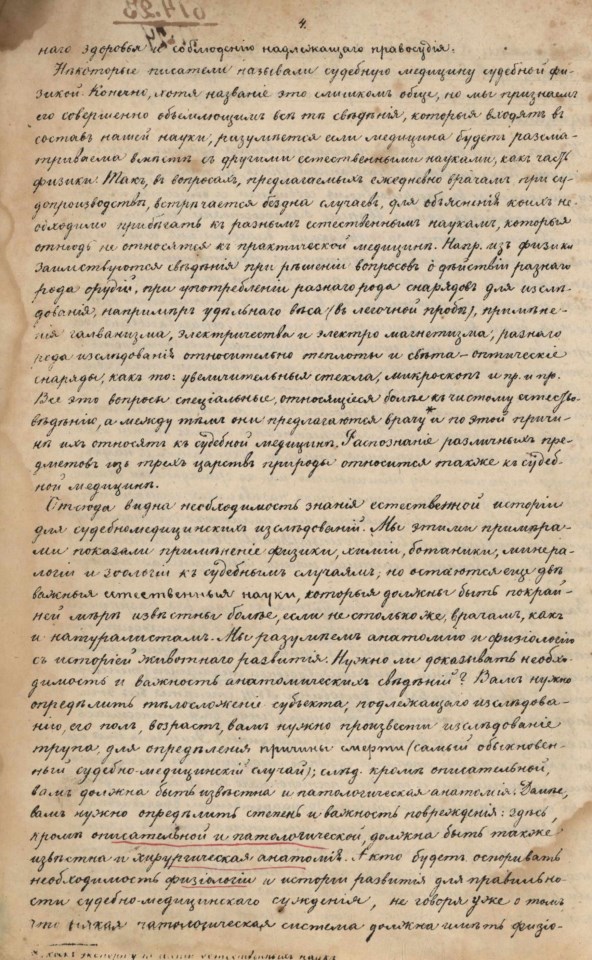 4.
наго здоровья и соблюденію надлежащаго правосудія.
Нѣкоторые писатели называли судебную медицину судебной фи-
зикой. Конечно, хотя названіе это слишкомъ обще, но мы признаемъ
его совершенно объемлющимъ всѣ тѣ свѣдѣнія, которыя входятъ въ
составъ нашей науки, разумѣется если медицина будетъ разсма-
триваема вмѣстѣ съ другими естественными науками, какъ часть
физики. Такъ, въ вопросахъ, предлагаемыхъ ежедневно врачамъ при су-
допроизводствѣ, встрѣчается бездна случаевъ, для объясненія коихъ не-
обходимо прибѣгать къ разнымъ естественнымъ наукамъ, которыя
отнюдь не относятся къ практической медицинѣ. Напр. изъ физики
заимствуются свѣдѣнія при рѣшеніи вопросовъ о дѣйствіи разнаго
рода орудій, при употребленіи разнаго рода снарядовъ для изслѣ-
дованія, напримѣръ удѣльнаго вѣса (въ легочной пробѣ), примѣне-
нія галванизма, электричества и электро магнетизма, разнаго
рода изслѣдованія относительно теплоты и свѣта – оптическіе
снаряды, какъ то: увеличительныя стекла, микроскопъ и пр. и пр.
Все это вопросы спеціальные, относящіеся болѣе къ чистому естество-
вѣдѣнію, а между тѣмъ они предлагаются врачу* и по этой причи-
нѣ ихъ относятъ къ судебной медицинѣ. Распознаніе различныхъ пре-
дметовъ изъ трехъ царствъ природы относится также къ судеб-
ной медицинѣ.
Отсюда видна необходимость знанія естественной исторіи
для судебномедицинскихъ изслѣдованій. Мы этими примѣра-
ми показали примѣненіе физики, химіи, ботаники, минера-
логіи и зоологіи къ судебнымъ случаямъ; но остаются еще двѣ
важныя естественныя науки, которыя должны быть покрай-
ней мѣрѣ извѣстны болѣе, если не столько же, врачамъ, какъ
и натуралистамъ. Мы разумѣемъ анатомію и физіологію
съ исторіей животнаго развитія. Нужно ли доказывать необхо-
димость и важность анатомическихъ свѣдѣній? Вамъ нужно
опредѣлить тѣлосложеніе субъекта, подлежащаго изслѣдова-
нію, его полъ, возрастъ, вамъ нужно произвести изслѣдованіе
трупа, для опредѣленія причины смерти (самый обыкновен-
ный судебно-медицинскій случай); слѣд. кромѣ описательной,
вамъ должна быть извѣстна и патологическая анатомія. Далѣе,
вамъ нужно опредѣлить степень и важность поврежденія: здѣсь,
кромѣ описательной и патологической, должна быть также
извѣстна и хирургическая анатомія. А кто будетъ оспоривать
необходимость физіологіи и исторіи развитія для правильно-
сти судебно-медицинскаго сужденія, не говоря уже о томъ
что всякая патологическая система должна имѣть физіо-